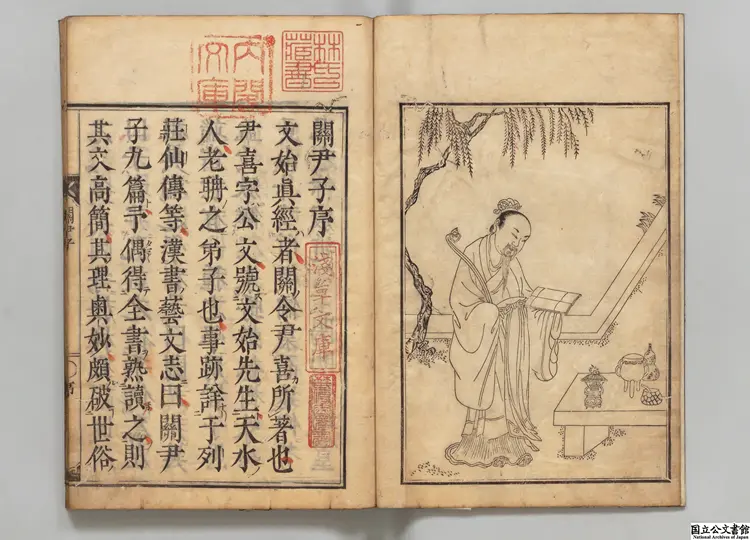 林氏藏書
內閣文庫
關尹子序
文始眞經者關令尹喜所著也
淺草文庫
尹喜字公文號文始先生天水
人老聃之弟子也事跡詮于列
莊仙傳等漢書藝文志曰關尹
子九篇予偶得全書熟讀之則
其文高簡其理奧妙頗破世俗
国立公文書館
National Archives of Japan